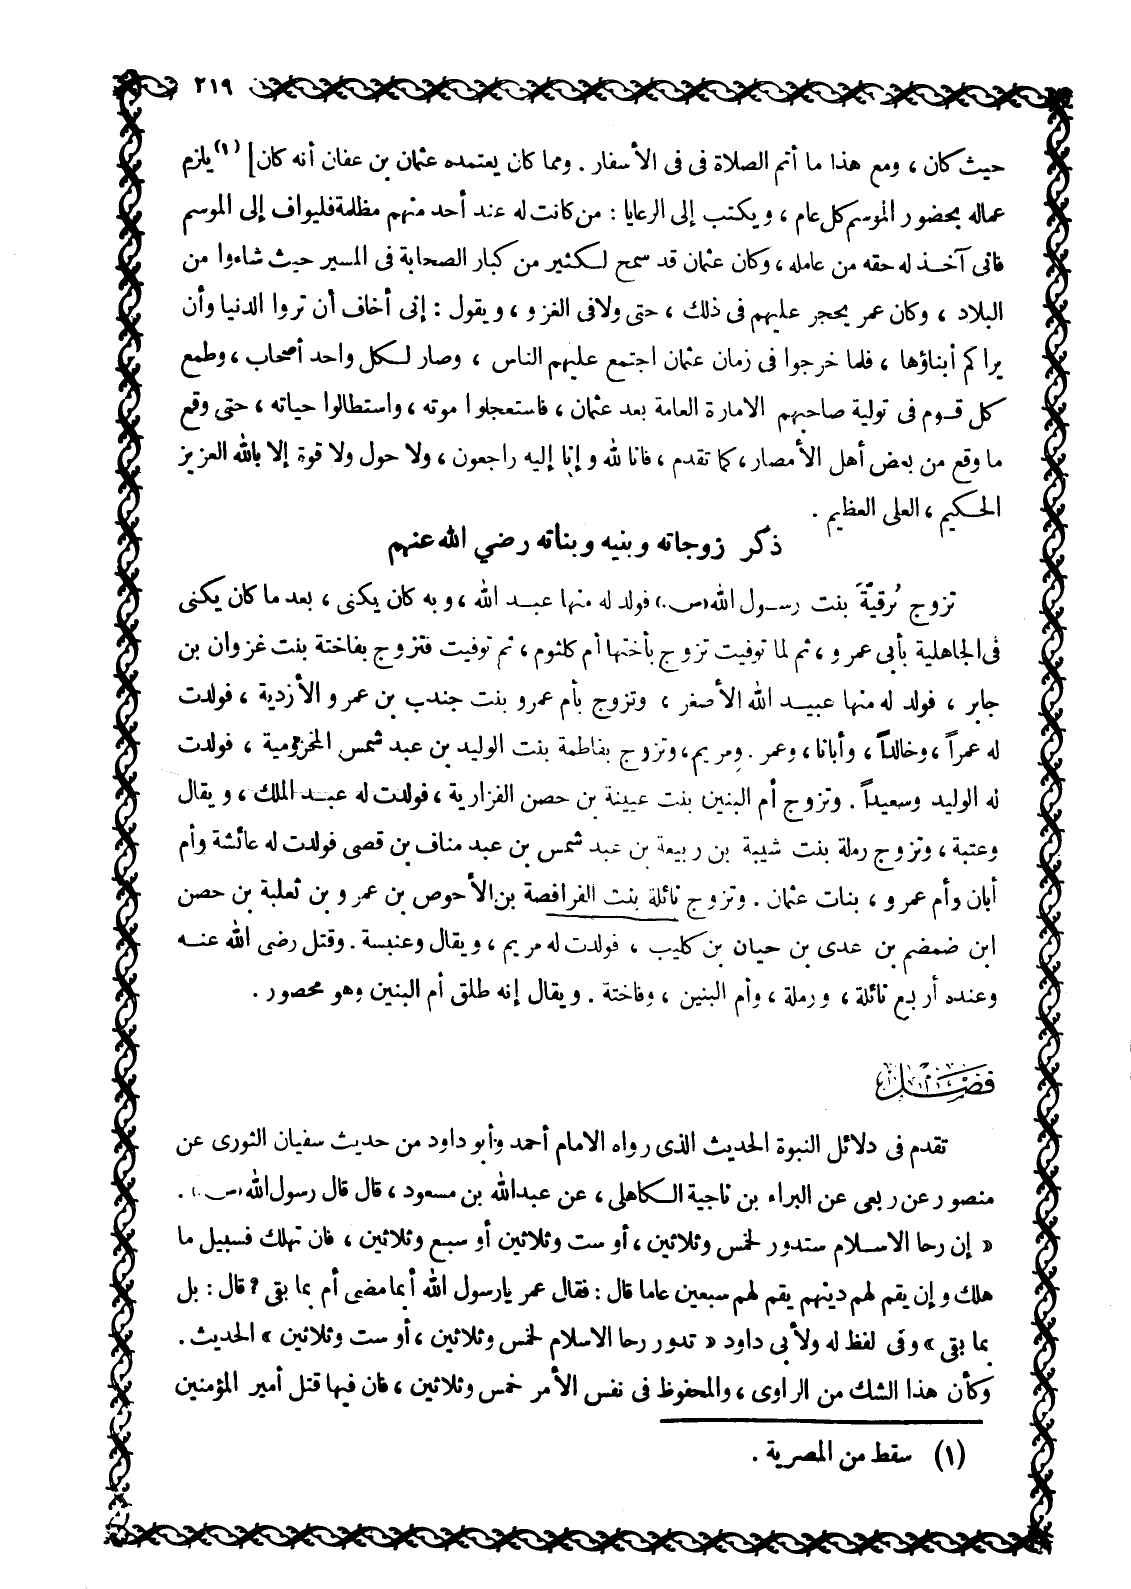 ٢١٩
حيث كان ، ومع هذا ما أتم الصلاة فى فى الأسفار . ومما كان يعتمده عثمان بن عفان أنه كان] (١) يلزم
عماله بحضور الموسم كل عام ، ويكتب إلى الرعايا : من كانت له عند أحد منهم مظلمة فليواف إلى الموسم
فانى آخذ له حقه من عامله ، وكان عثمان قد سمح لكثير من كبار الصحابة فى المسير حيث شاءوا من
البلاد ، وكان عمر يحجر عليهم فى ذلك ، حتى ولا فى الغزو ، ويقول : إنى أخاف أن تروا الدنيا وأن
يراكم أبناؤها ، فلما خرجوا فى زمان عثمان اجتمع عليهم الناس ، وصار لكل واحد أصحاب ، وطمع
كل قوم فى تولية صاحبهم الامارة العامة بعد عثمان ، فاستعجلوا موته ، واستطالوا حياته ، حتى وقع
ما وقع من بعض أهل الأمصار ، كما تقدم ، فانا لله وإنا إليه راجعون ، ولا حول ولا قوة إلا بالله العزيز
الحكيم ، العلى العظيم .
ذكر زوجاته وبنيه وبناته رضي الله عنهم
تزوج بُرقيّةَ بنت رسول الله (ص.) فولد له منها عبد الله ، وبه كان يكنى ، بعد ما كان يكنى
فى الجاهلية بأبى عمرو ، ثم لما توفيت تزوج بأختها أم كلثوم ، ثم توفيت فتزوج بفاختة بنت غزوان بن
جابر ، فولد له منها عبيد الله الأصغر ، وتزوج بأم عمرو بنت جندب بن عمرو الأزدية ، فولدت
له عمراً ، وخالداً ، وأبانا ، وعمر . ومريم ، وتزوج بفاطمة بنت الوليد بن عبد شمس المخزومية ، فولدت
له الوليد وسعيداً . وتزوج أم البنين بنت عيينة بن حصن الفزارية ، فولدت له عبد الملك ، ويقال
وعتبة ، وتزوج رملة بنت شيبة بن ربيعة بن عبد شمس بن عبد مناف بن قصى فولدت له عائشة وأم
أبان وأم عمرو ، بنات عثمان . وتزوج نائلة بنت الفرافصة بن الأحوص بن عمرو بن ثعلبة بن حصن
ابن ضمضم بن عدى بن حيان بن كليب ، فولدت له مريم ، ويقال وعنبسة . وقتل رضى الله عنه
وعنده أربع نائلة ، ورملة ، وأم البنين ، وفاختة . ويقال إنه طلق أم البنين وهو محصور .
فصل
تقدم فى دلائل النبوة الحديث الذى رواه الامام أحمد وأبو داود من حديث سفيان الثورى عن
منصور عن ربعى عن البراء بن ناجية الكاهلى ، عن عبدالله بن مسعود ، قال قال رسول الله (ص.) .
« إن رحا الاسلام ستدور لخمس وثلاثين ، أو ست وثلاثين أو سبع وثلاثين ، فان تهلك فسبيل ما
هلك وإن يقم لهم دينهم يقم لهم سبعين عاما قال : فقال عمر يارسول الله أبما مضى أم بما بقى ؟ قال : بل
بما بقى » وفى لفظ له ولأبى داود « تدور رحا الاسلام لخمس وثلاثين ، أو ست وثلاثين » الحديث .
وكأن هذا الشك من الراوى ، والمحفوظ فى نفس الأمر خمس وثلاثين ، فان فيها قتل أمير المؤمنين
(١) سقط من المصرية .